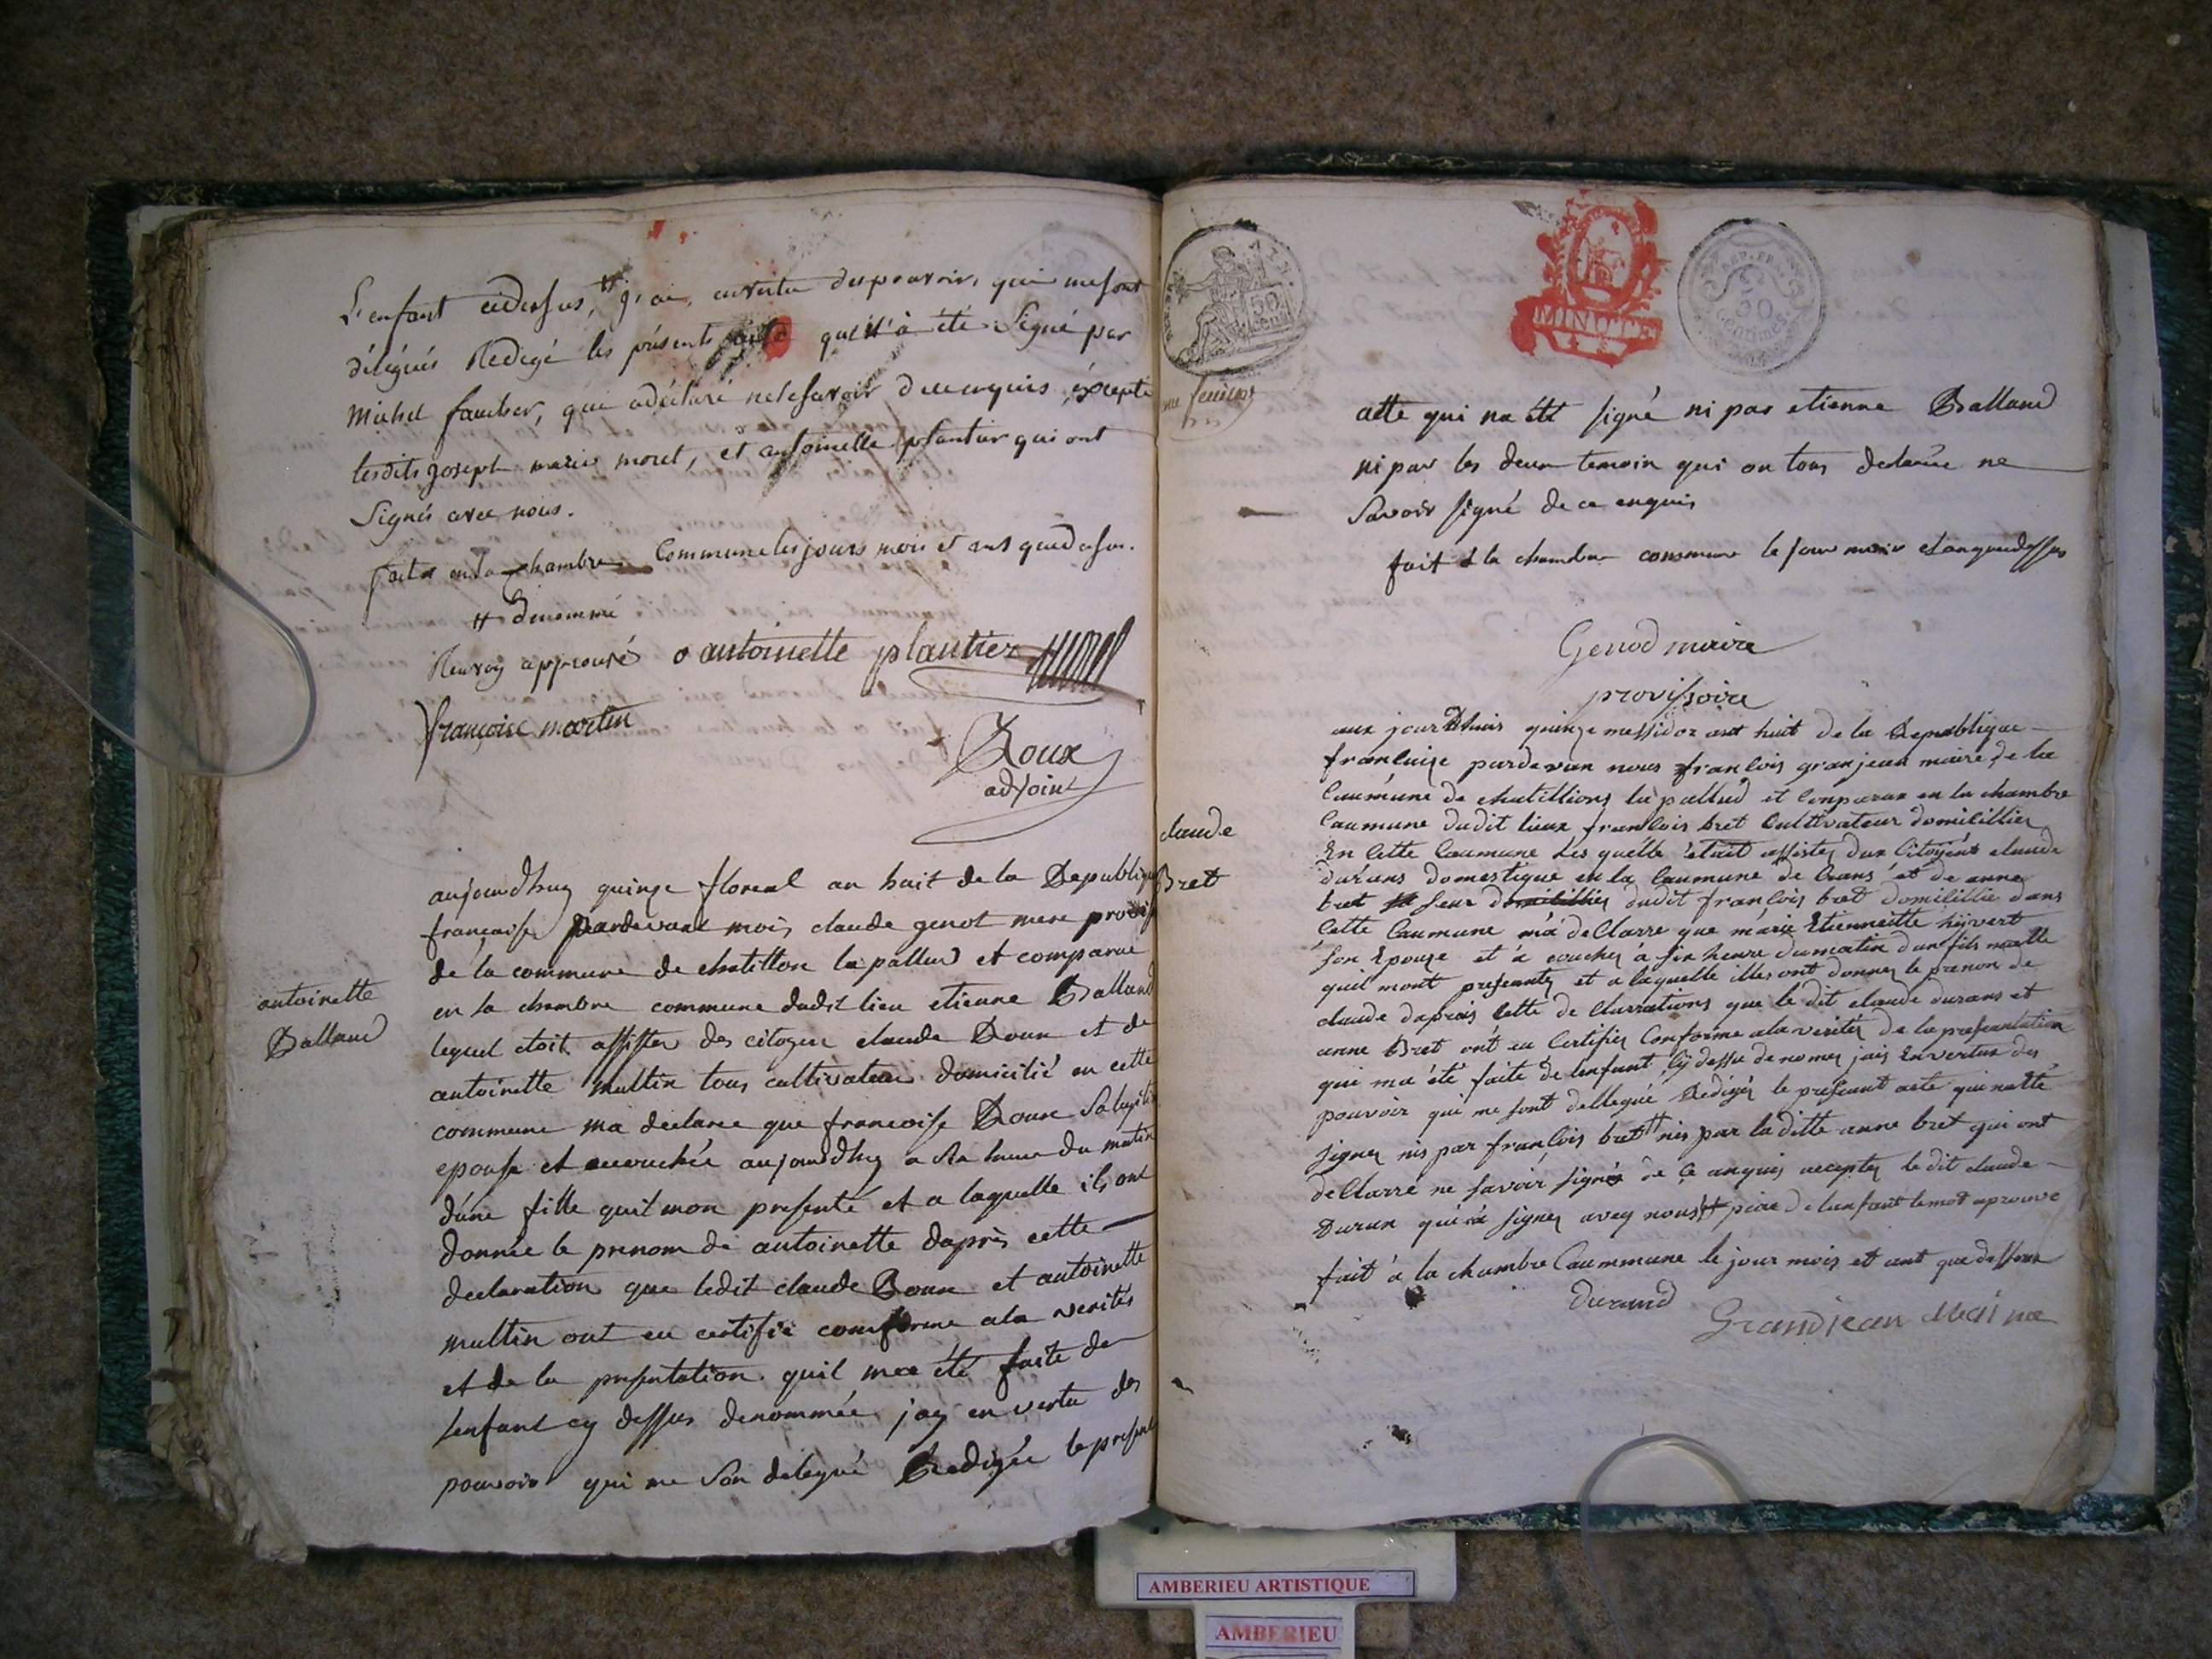 L'enfant cidessus, # j'ai, envertu des pouvoirs qui me sont
délégués Redigé les présents acte qui n'à été Signé par
Michel faucher, qui a déclaré ne le savoir de ce enquis, éxcepté
lesdits joseph marie moret, et antoinette plantier qui ont
Signés avec nous.
fait en la chambre Commune les jours mois et ans quedessus.
# dénommé
Renvoy approuvé o antoinette plantier
françoise martin
Roux
adjoint
antoinette
Balland
aujourdhuy quinze floreal an huit de la Republique
française pardevant mois claude genot mere provis
de la commune de chatillon la pallud et comparue
en la chambre commune dudit lieu etienne Balland
lequel etoit assister des citoyen claude Roux et de
antoinette multin tous cultivateur domicilié en cette
commune ma declaree que francoise Roux
epouse et accouchée aujourdhuy a heure du matin
dune fille quil mon presenté et a laquelle ils ont
donnée le prenom de antoinette daprès cette
declaration que ledit claude Roux et antoinette
multin ont eu certifié conforme a la verités
et de la presentation quil mee été faite de
lenfant cy dessus denommée jay en vertu des
pouvoir qui me Son delegué Redigée le present
acte qui na été signé ni par etienne Balland
ni par les deux temoin qui on tous declarée ne
Savoir signé de ce enquis
fait à la chambre commune le jour mois et an que dessus
Genod maire
provissoire
claude
Bret
aux jourdhuis quinze messidor ant huit de la Republique
franluise pardevan nous franlois granjean maire de la
Caumune de chatillions la pallud et Conparan en la chambre
Caumune dudit lieux franlois bret Cultivateur domicillier
En Cette Caumune Les quelle était assister dux Citoyent claude
durans domestique en la Caumune de Crans et de anne
bret seur domicilliez dudit franlois bret domicillie dans
Cette Caumune m'a dellarre que marie Etiennette hijvert
son Epouze et a couchez à six heure dumatin dun fils malle
quil mont presentez et a laquelle illes ont donnez le prenon de
claude daprais Cette de Clarrations que le dit claude durans et
anne Bret ont eu Certifiez Conforme a la veritez de la presantation
qui ma été faite de lenfant Cy dessu denomez jais En vertux des
pouvoir qui me sont dellegué Redigez le presant acte qui natté
signez nis par franlois bret # nis par laditte anne bret qui ont
dellarré ne savoir signés de Ce anquis acceptez le dit claude
Duran qui a signez avez nous # piere de lanfant lemot aprouve
fait à la chambre Caummune le jour mois et ant que dessus
Durand
Grandjean Maire
AMBERIEU ARTISTIQUE
AMBERIEU